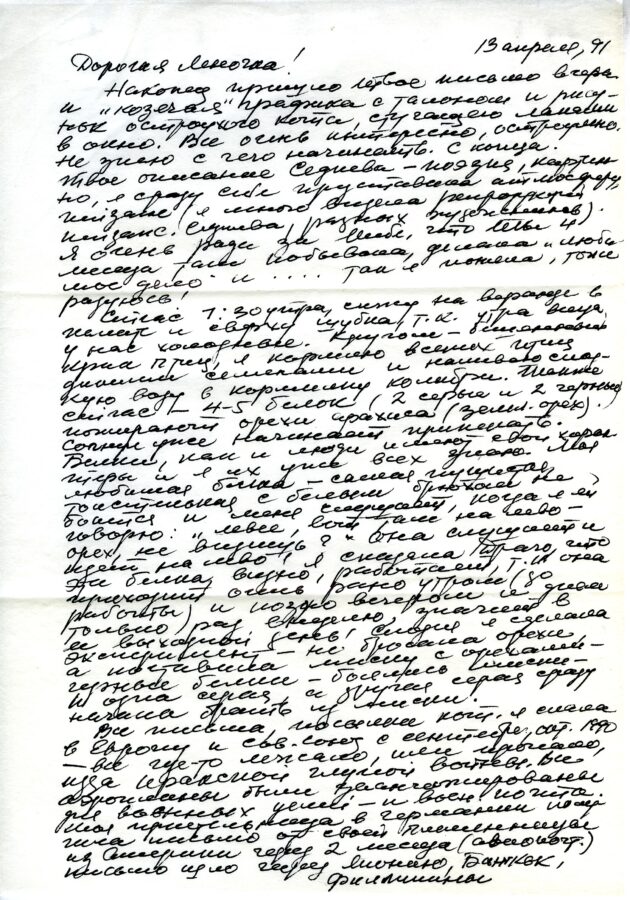 13 апреля, 91
Дорогая Леночка!
Наконец пришло твое письмо вчера
и "козечая" графика с талоном и рису-
нок остроухого кота, стучащего лапами
в окно. Все очень интересно, остроумно.
Не знаю с чего начинать. С конца.
Твое описание Седнева - поэзия, картин-
но, я сразу себе представила атмосферу,
пейзаж (я много видела репродукций
пейзаж. Седнева, разных художников).
Я очень рада за тебя, что ты 4
месяца там побывала, делала "люби-
мое дело" и .... так я поняла, тоже
разулась!
Сейчас 7:30 утра, сижу на веранде в
халат и сверху шубка, т.к. утра еще
у нас холодные. Кругом -
крик птиц, я кормлю всяких птиц
семенами и наливаю слад-
кую воду в кормилку колибри. Также
сейчас - 4-5 белок (2 серые и 2 черные)
пожирают орехи арахиса (земл. орех).
Солнце уже начинает припекать.
Белки, как и люди имеют свой харак-
теры и я их уже всех знаю. Моя
любимая белка - самая пушистая,
толстенькая с белым брюхом не
боится и меня слушает, когда я ей
говорю: "левее, вон там на лево -
орех, не видишь?" Она слушает и
идет на лево! Я сказала Траво, что
эта белка, видно, работает, т.к. она
приходит очень рано утром (до
работы) и поздно вечером и днем
только раз в неделю, значит в
ее выходной день! Сегодня я сделала
эксперимент - не бросала орехи,
а поставила миску с орехами -
черные белки - боялись миски -
и одна серая, а другая серая сразу
начала брать из миски.
Все письма, посылки кот. я слала
в Европу и Сов. Союз с сентября, окт. 1990
- все где-то лежало, или пропало,
из-за Иракской глупой войны. Все
аэропланы были
для важных целей - и воен. почта.
Моя приятельница в Германии полу-
чила письмо от своей племянницы
из Америки через 2 месяца (авиапочт.)
письмо шло через Японию, Бангкок,
Филиппины